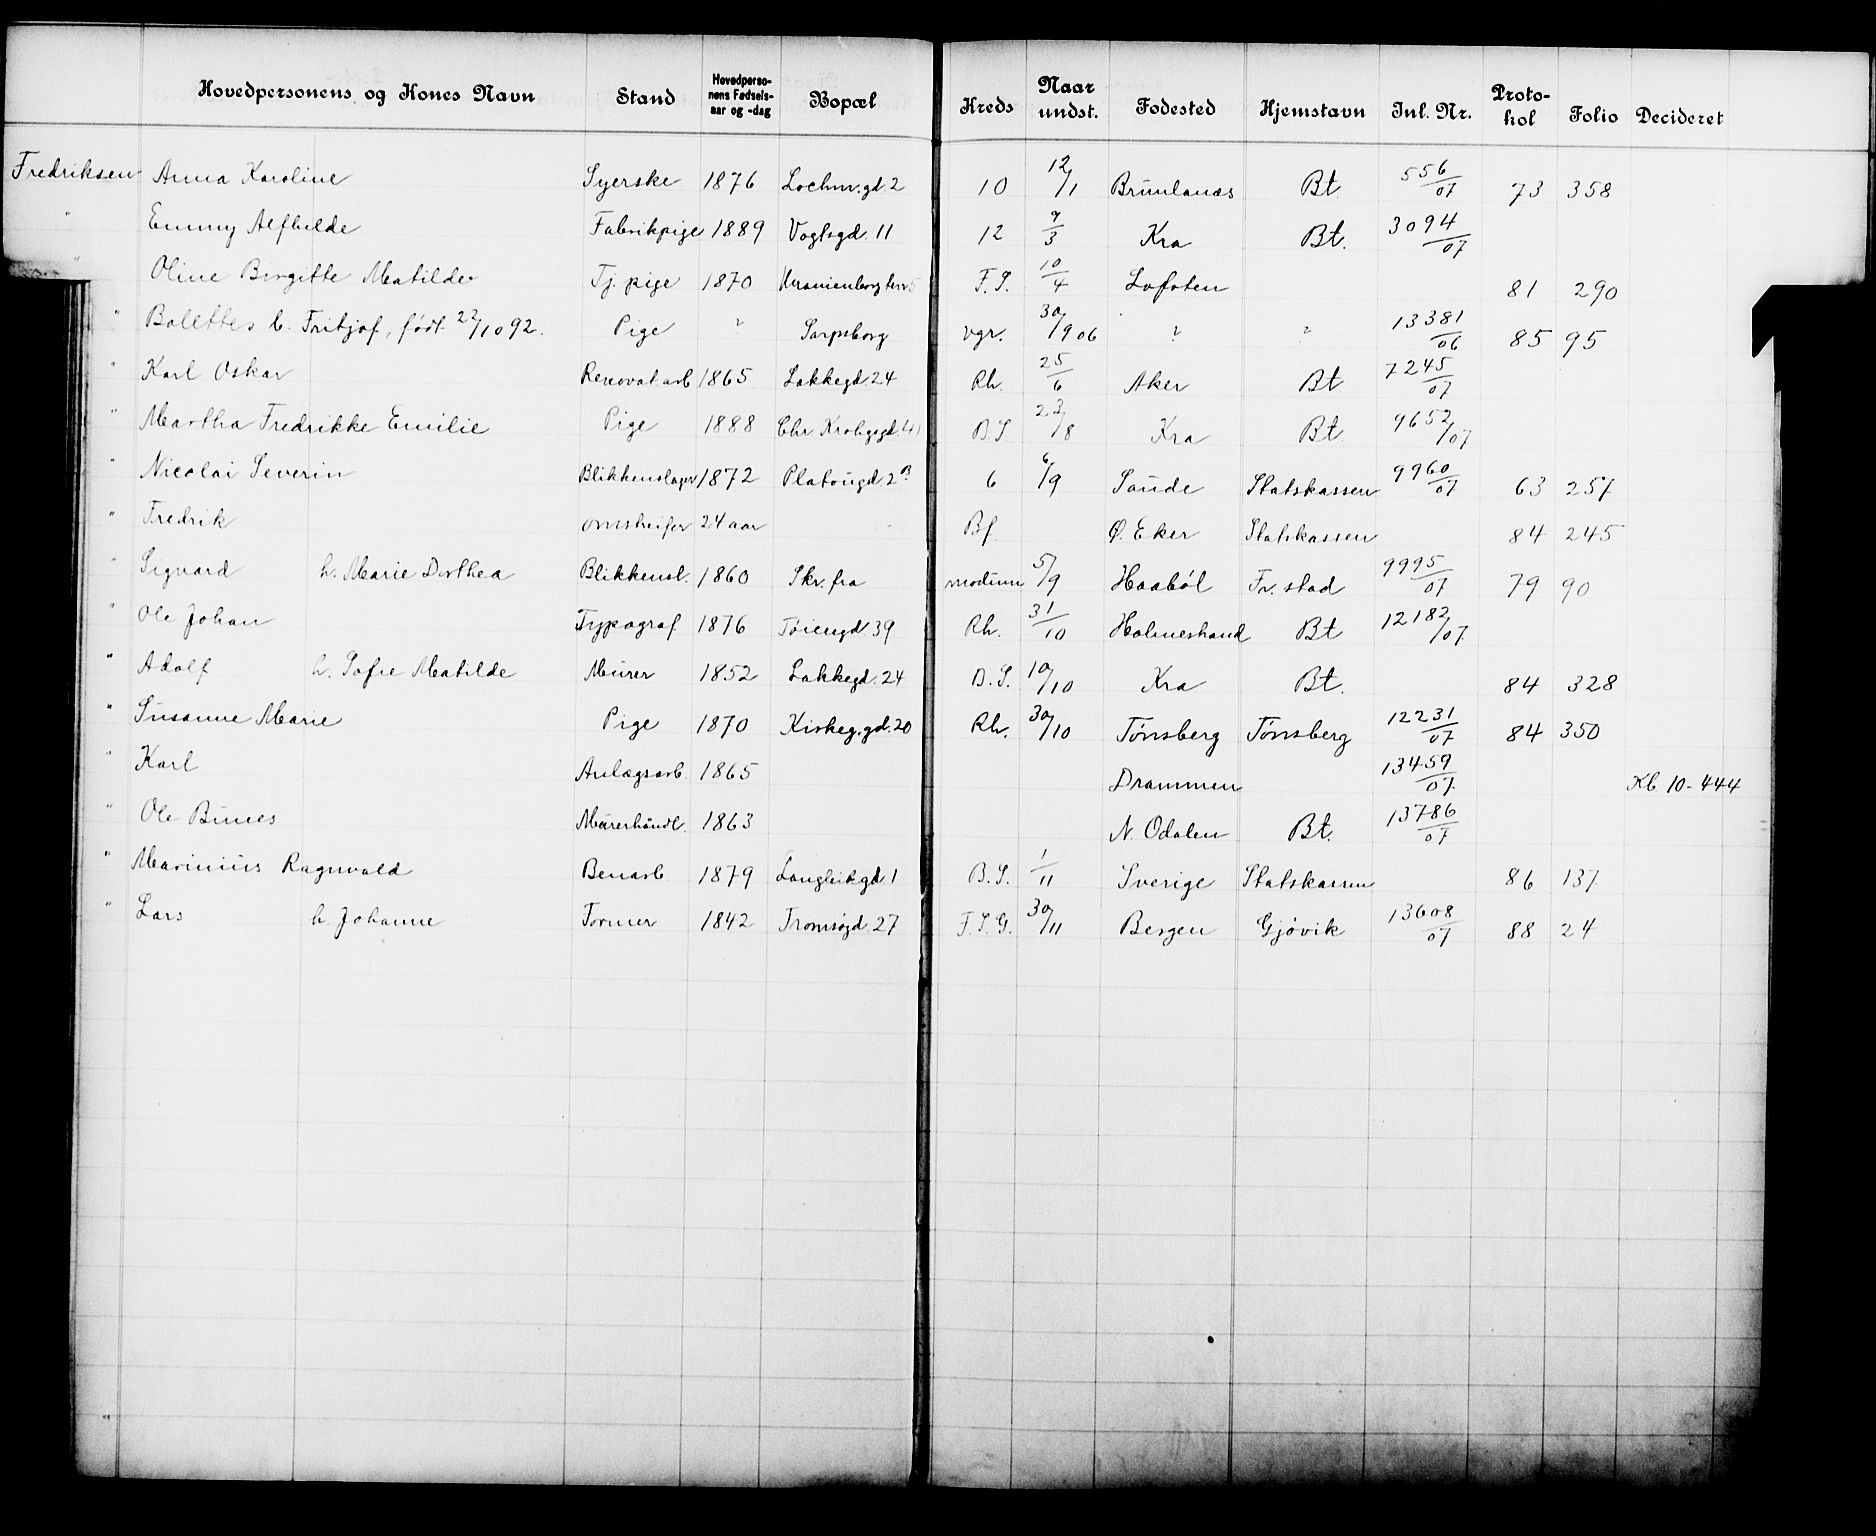 Hovedpersonens og Kones Navn Stand Hovedperso-nens Fødsels-aar og -dag Bopæl Kreds Naar undst. Fødested Hjemstavn Jnl. Nr. Proto-kol Folio Decideret
Fredriksen Anna Karoline Syerske 1876 Lochm.gd. 2 10 12/1 Brunlanæs Bt. 556/07 73 358
" Emmy Alfhilde Fabrikpige 1889 Vogtsgd. 11 12 9/3 Kra Bt. 3094/07
" Oline Birgitte Matilde Tj. pige 1870 Uranienborg terr 5 F.S. 10/4 Lofoten 81 290
" Bolettes b. Fritjof, født 22/10 92. Pige ? Sarpsborg vgr. 30/9 06 ? " 13381/06 85 95
" Karl Oskar Renovat.arb 1865 Lakkegd. 24 Rh. 25/6 Aker Bt 7245/07
" Martha Fredrikke Emilie Pige 1888 Chr Krohgsgd. 41 B.S 23/8 Kra Bt. 9652/07
" Nicolai Severin Blikkenslager 1872 Platougd 2 B 6 6/9 Sande Statskassen 9960/07 63 257
" Fredrik omstreifer 24 aar Bf. Ø. Eker Statskassen 84 245
" Sigvard h. Marie Dorthea Blikkensl. 1860 Skr. fra modum 5/9 Haabøl Fr. stad 9995/07 79 90
" Ole Johan Typograf 1876 Tøiengd 39 Rh. 31/10 Holmestrand Bt 12182/07
" Adolf h. Sofie Matilde Murer 1852 Lakkegd. 24 B.S. 10/10 Kra Bt. 84 328
" Susanne Marie Pige 1870 Kirkeg.gd. 20 Rh. 30/10 Tønsberg Tønsberg 12231/07 84 350
" Karl Anlægsarb. 1865 Drammen 13459/07 Kb 10-444
" Ole Murerhåndl. 1863 N. Odalen Bt. 13786/07
" Marinius Ragnvald Benarb 1879 Langleikgd 1 B.S. 1/11 Sverige Statskassen 86 137
" Lars h. Johanne Former 1842 Tromsøgd. 27 F.S.G. 30/11 Bergen Gjøvik 13608/07 88 24